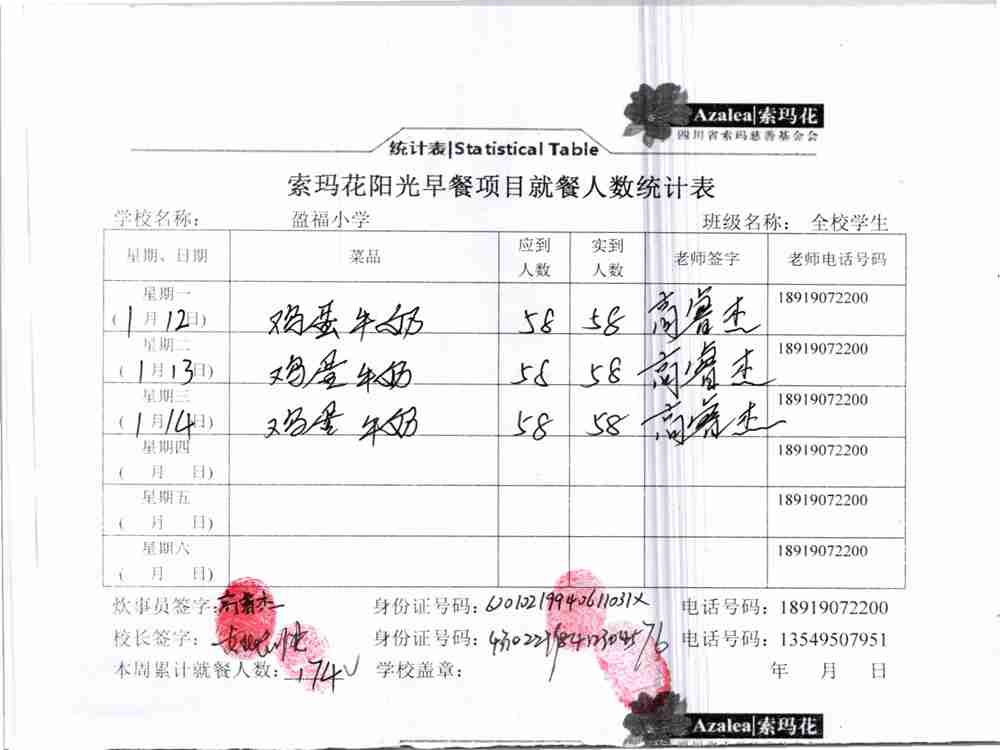 Azalea|索玛花
四川省索玛慈善基金会
统计表|Statistical Table
索玛花阳光早餐项目就餐人数统计表
学校名称: 盈福小学 班级名称: 全校学生
星期、日期 菜品 应到人数 实到人数 老师签字 老师电话号码
星期一 18919072200
(1月12日) 鸡蛋 牛奶 58 58 高睿杰
星期二 18919072200
(1月13日) 鸡蛋 牛奶 58 58 高睿杰
星期三 18919072200
(1月14日) 鸡蛋 牛奶 58 58 高睿杰
星期四 18919072200
( 月 日)
星期五 18919072200
( 月 日)
星期六 18919072200
( 月 日)
炊事员签字: 高睿杰 身份证号码: 62010219940611031X 电话号码: 18919072200
校长签字: 身份证号码: 电话号码: 13549507951
本周累计就餐人数: 174 学校盖章: 年 月 日
Azalea|索玛花